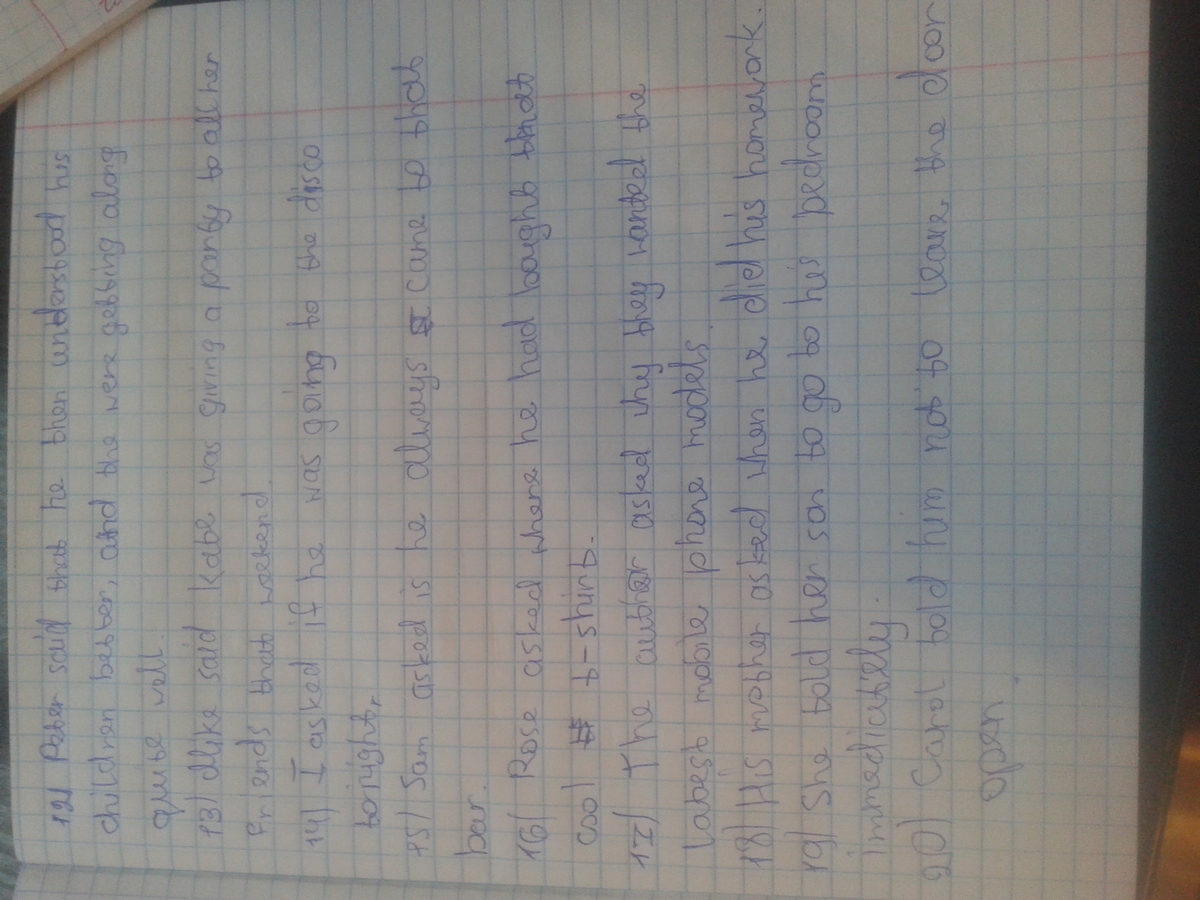 12) Peter said that he then understood his
children better, and the were getting along
quite well.
13) Mike said Kate was giving a party to all her
friends that weekend.
14) I asked if he was going to the disco
tonight,
15) Sam asked is he always came to that
bar.
16) Rose asked where he had bought that
cool t-shirt.
17) The author asked why they wanted the
latest mobile phone models.
18) His mother asked when he did his homework.
19) She told her son to go to his bedroom
immediatily.
20) Carol told him not to leave the door
open.